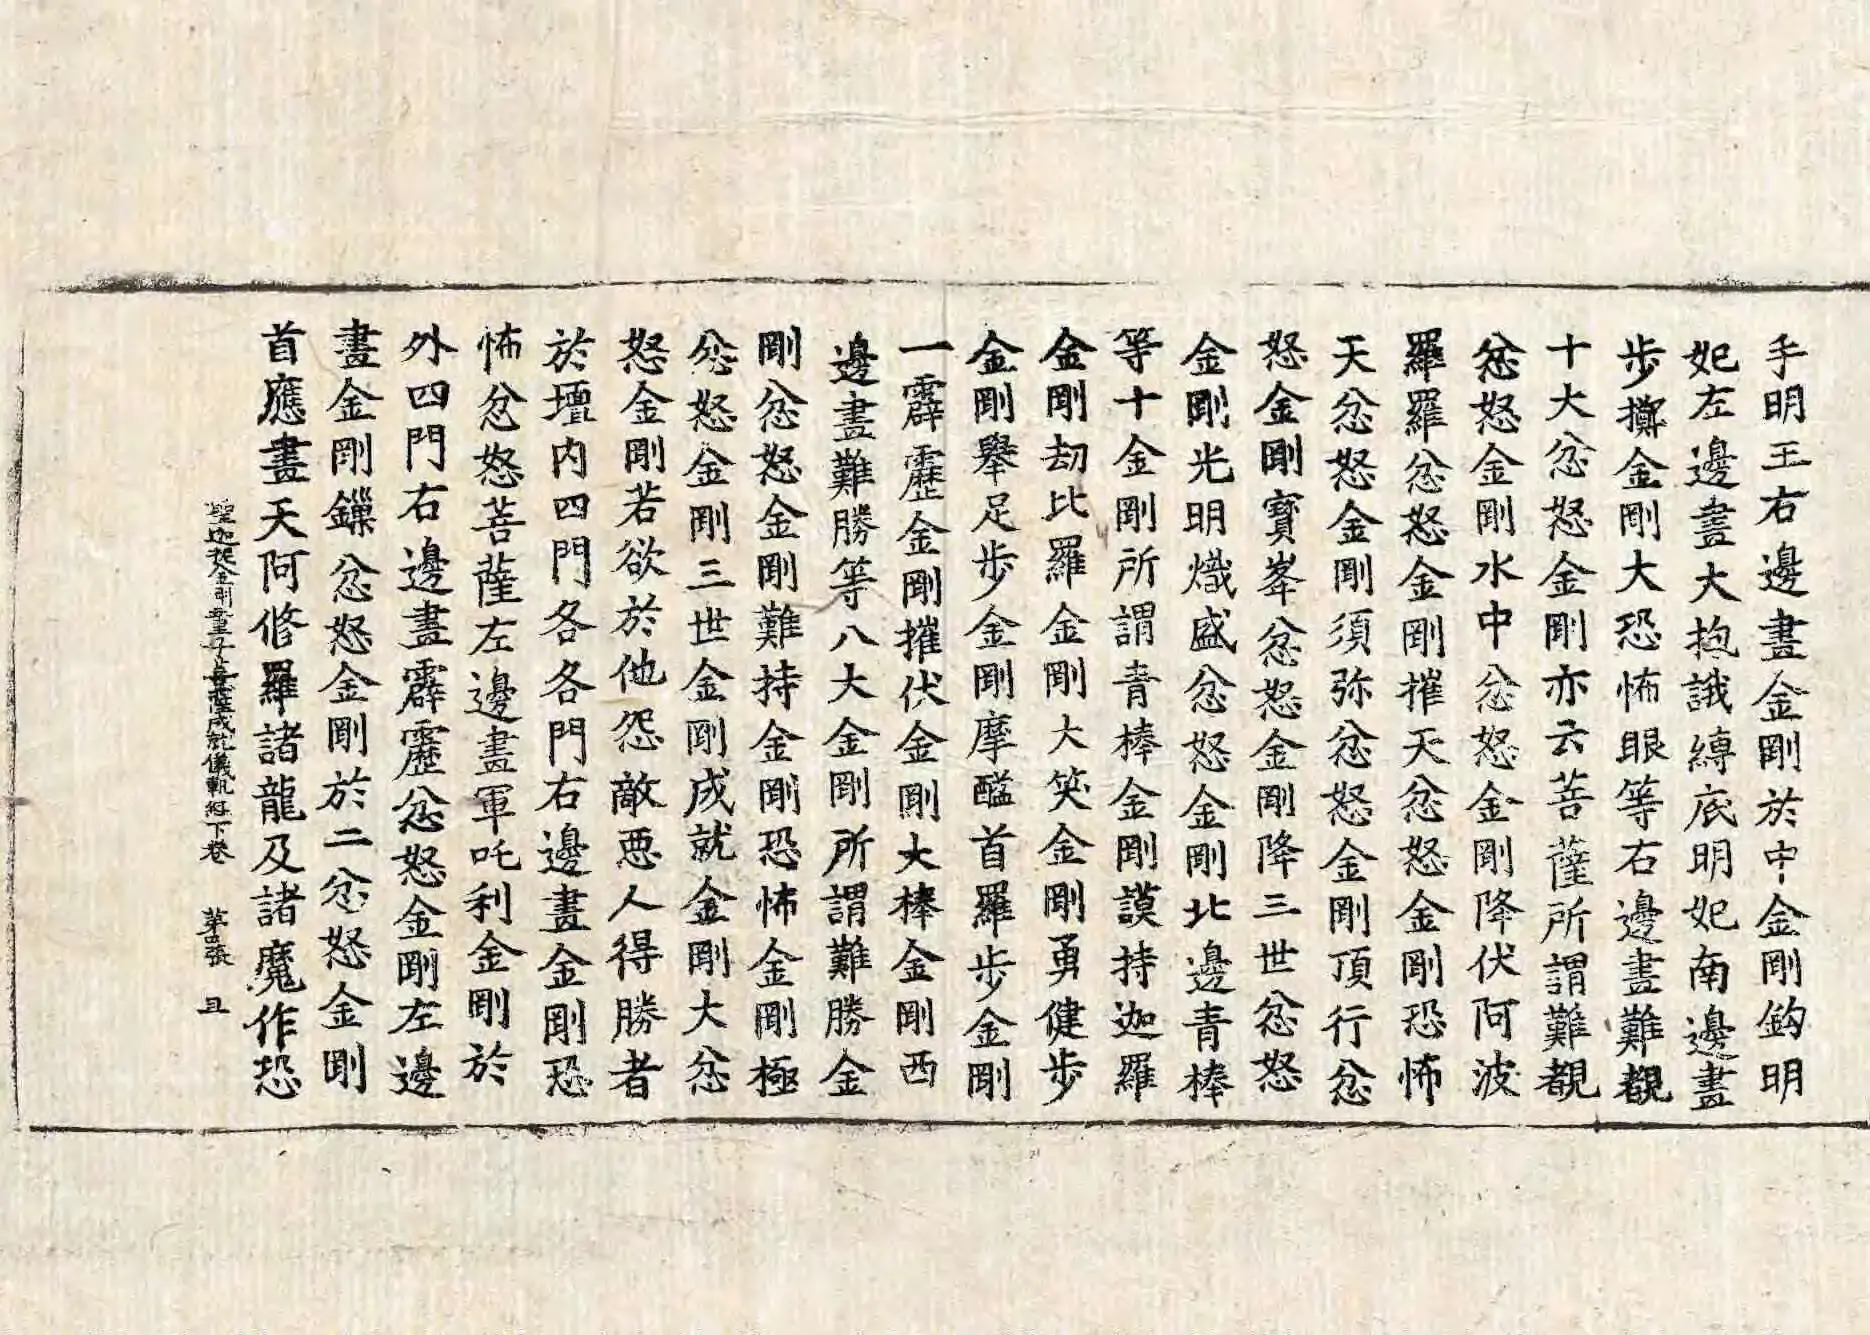 手明王右邊畫金剛於中金剛鈎明
妃左邊畫大抱誐縛底明妃南邊畫
步擲金剛大恐怖眼等右邊畫難覩
十大忿怒金剛亦云菩薩所謂難覩
忿怒金剛水中忿怒金剛降伏阿波
羅羅忿怒金剛摧天忿怒金剛恐怖
天忿怒金剛須弥忿怒金剛頂行忿
怒金剛寶峯忿怒金剛降三世忿怒
金剛光明熾盛忿怒金剛北邊青棒
等十金剛所謂青棒金剛謨持迦羅
金剛劫比羅金剛大笑金剛勇健步
金剛舉足步金剛摩醯首羅步金剛
一霹靂金剛摧伏金剛大棒金剛西
邊畫難勝等八大金剛所謂難勝金
剛忿怒金剛難持金剛恐怖金剛極
忿怒金剛三世金剛成就金剛大忿
怒金剛若欲於他怨敵惡人得勝者
於壇内四門各各門右邊畫金剛恐
怖忿怒菩薩左邊畫軍吒利金剛於
外四門右邊畫霹靂忿怒金剛左邊
畫金剛鏁忿怒金剛於二忿怒金剛
首應畫天阿脩羅諸龍及諸魔作恐
聖迦抳金剛童子菩薩成就儀軌經下卷 第 張 丑